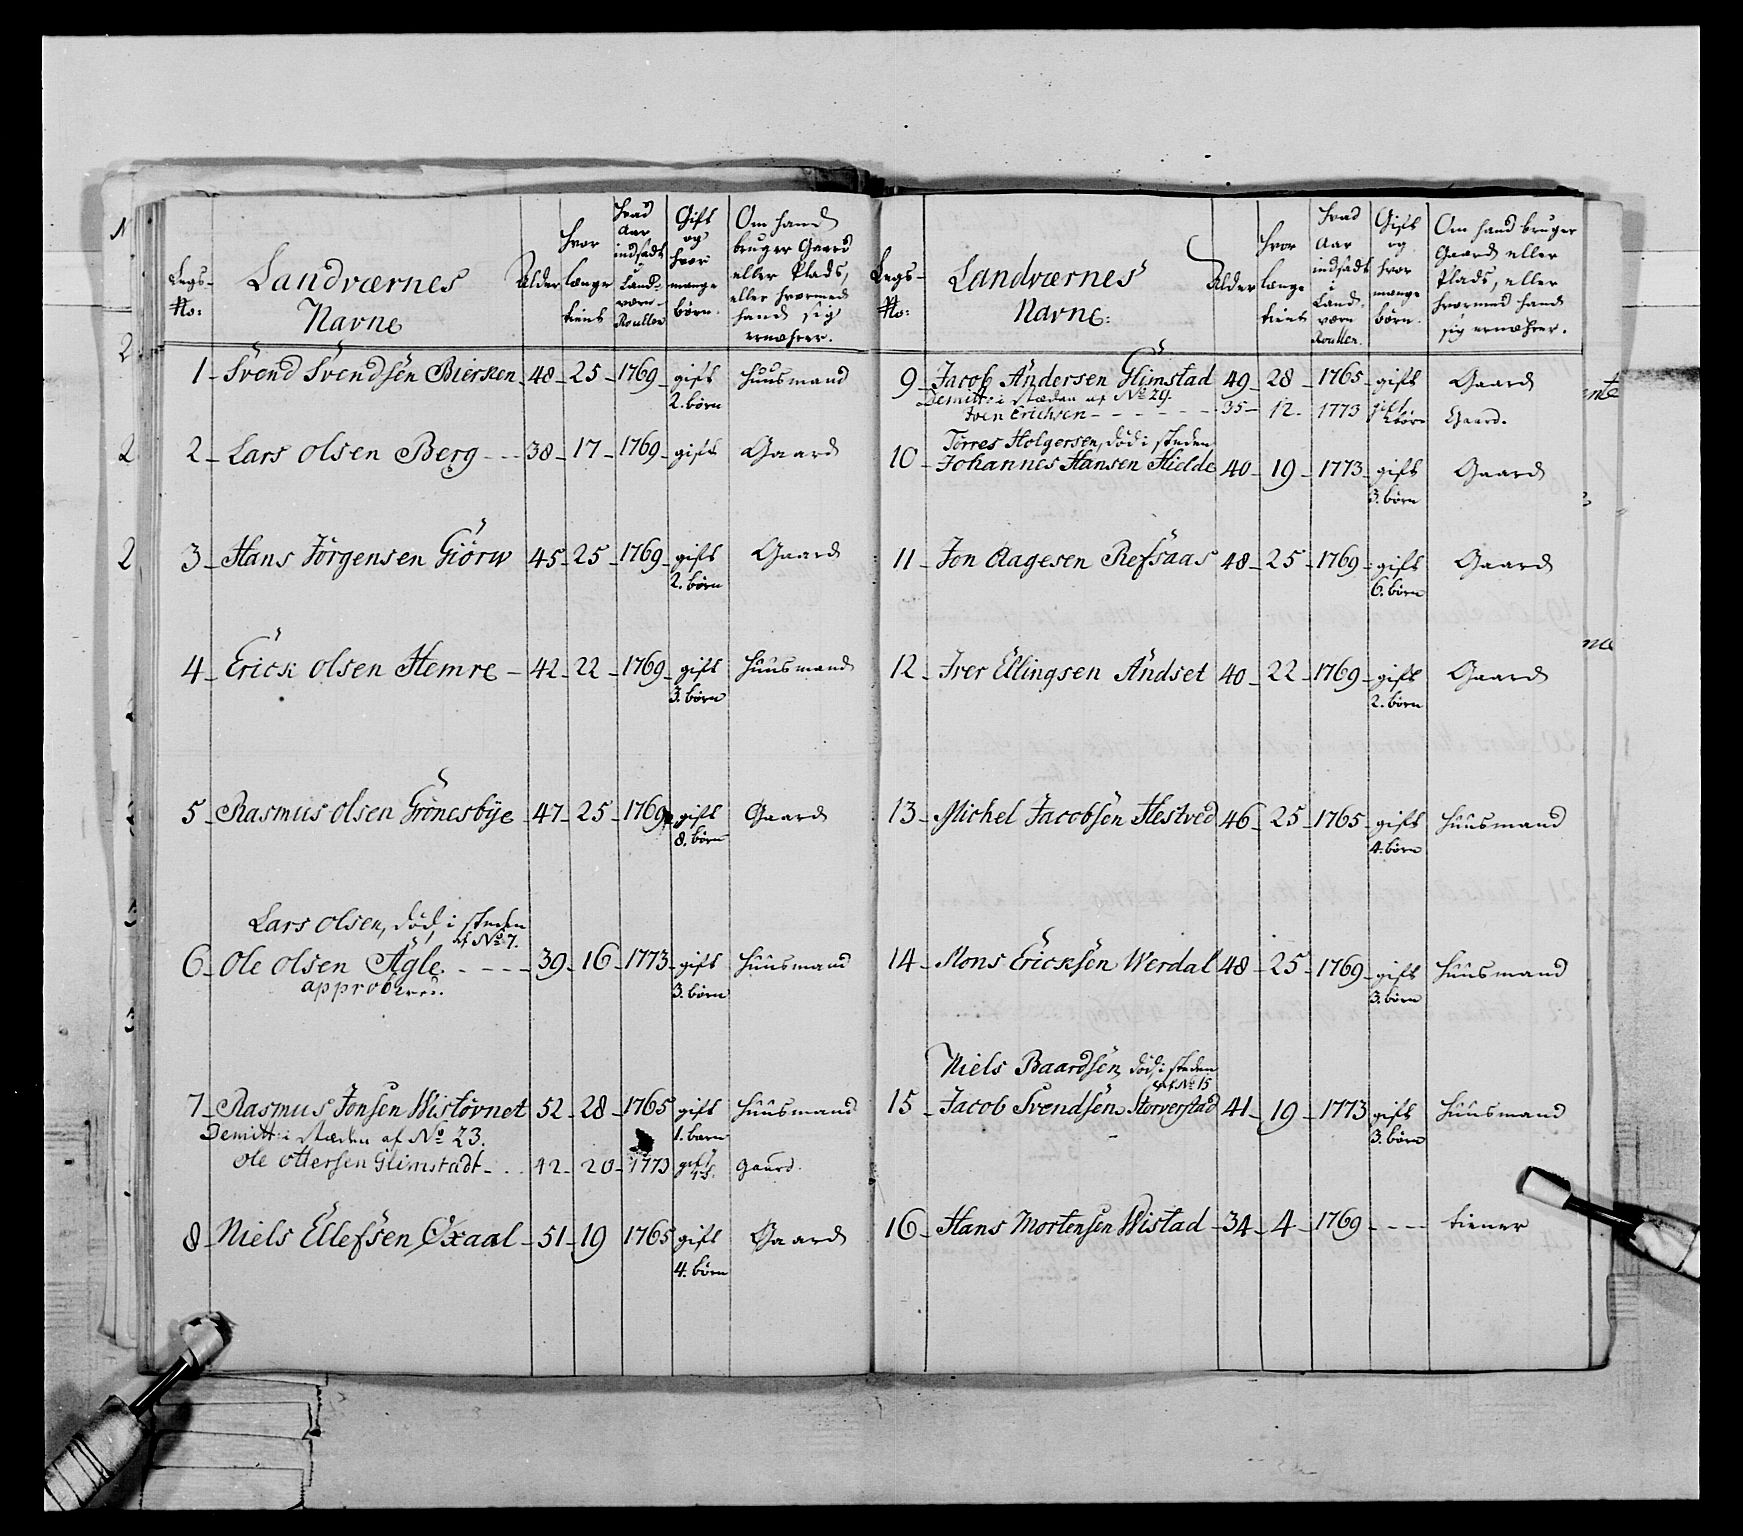 Legs-
No:
Landværnes
Navne
Alder
hvor
længe
tient
hvad
Aar
indsadt
i
Land-
værn-
Roullen
Gift
og
hvor
mange
børn.
Om hand
bruger Gaard
eller Plads,
eller hvormed
hand sig
ernæhrer.
1 - Svend Svendsen Biersken - 48 - 25 - 1769 - gift Huusmand
2. børn
2 - Lars Olsen Berg - - - 38 - 17 - 1769 - gift Gaard
3 - Hans Jörgensen Giörw 45 - 25 - 1769 - gift Gaard
2. børn
4 - Erick Olsen Hemre - 42 - 22 - 1769 - gift Huusmand
3. børn
5 - Rasmus Olsen Grönesbÿe - 47 - 25 - 1769 gift Gaard
8. børn
Lars Olsen, död, i steden
af No 7.
6 - Ole Olsen Ägle - - - - 39 - 16 - 1773 - gift Huusmand
approberes. 3. børn
7 - Rasmus Jonsen Wistövnet 52 - 28 - 1765 gift Huusmand
Demitt: i stæden af No 23. 1. barn
Ole Ottersen Glimstadt - . . 42 - 20 - 1773 gift Gaard.
8 - Niels Ellefsen Oxaal - 51 - 19 1765 gift Gaard
4. børn
Legs-
No:
Landværnes
Navne:
Alder
hvor
længe
tient
hvad
Aar
indsadt
i
Land-
værn
Roullen.
Gift
og
hvor
mange
børn.
Om hand bruger
Gaard eller
Plads, eller
hvormed hand
sig ernæhrer.
9 - Jacob Andersen Glimstad 49 - 28 - 1765 - gift Gaard
Demitt: i stæden af No 29.
Iven Erichsen - - - - - - 35 - 12. 1773 gift børn Gaard.
Törres Holgersen, död i steden
10 - Johannes Hansen Hielde 40 - 19 - 1773 - gift Gaard
3. børn
11 - Jon Aagesen Refsaas 48 - 25 - 1769 - gift Gaard
6. børn
12 - Iver Ellingsen Andset 40 - 22 - 1769 - gift Gaard
2. børn
13 - Michel Jacobsen Hestved 46 - 25 - 1765 - gift Huusmand
4. børn
14 - Mons Ericksen Werdal 48 - 25 - 1769 - gift Huusmand
3. børn
Niels Baardsen, död, i steden
af No 15
15 - Jacob Svendsen Storverstad 41 - 19 - 1773 gift Huusmand
3. børn
16 - Hans Mortensen Wistad - 34 - 4 - 1769 - - - - tiener